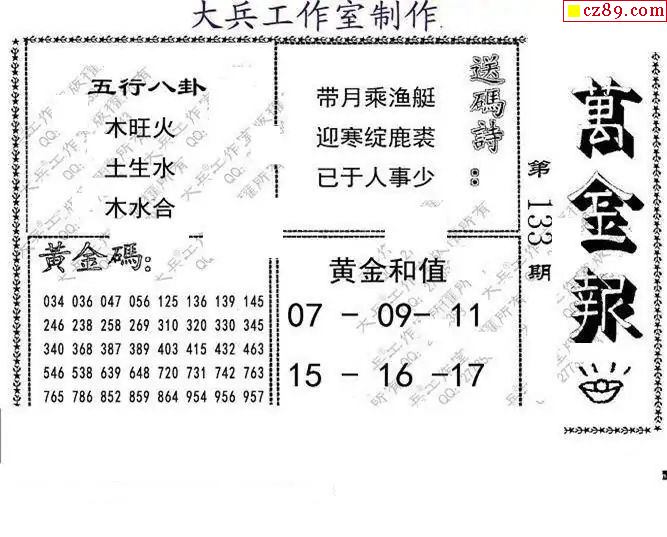 大兵工作室制作
cz89.com
五行八卦
木旺火
土生水
木水合
带月乘渔艇
迎寒绽鹿裘
已于人事少
送碼詩：
黃金碼：
034 036 047 056 125 136 139 145
246 238 258 269 310 320 330 345
340 368 387 389 403 415 432 463
546 538 639 648 720 731 742 763
765 786 852 859 864 954 956 957
黄金和值
07 - 09- 11
15 - 16 -17
第133期
萬金報